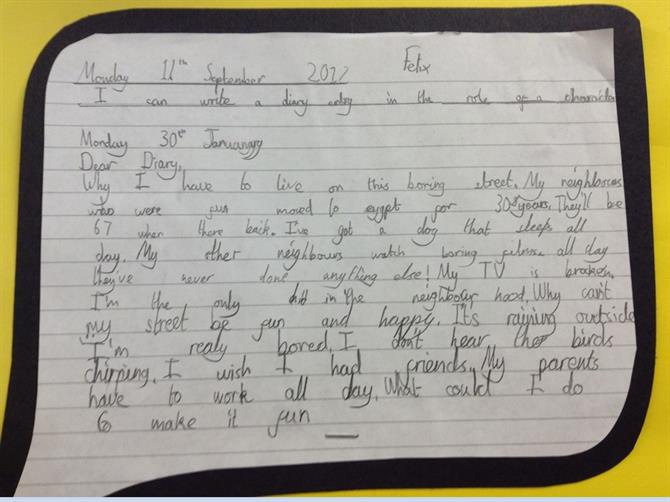 Monday 11th September 2012 Felix
I can write a diary entry in the role of a character
Monday 30th Januanary
Dear Diary,
Why I have to live on this boring street. My neighbores
who were fun moved to egypt for 30 years. They'll be
67 when there back. I've got a dog that sleeps all
day. My other neighbours watch boring all day
they've never done anything else! My TV is broaken.
I'm the only in the neighbour hood. Why can't
my street be fun and happy. It's raining outside
I'm realy bored. I don't hear the birds
chirping. I wish I had friends. My parents
have to work all day. What could I do
to make it fun